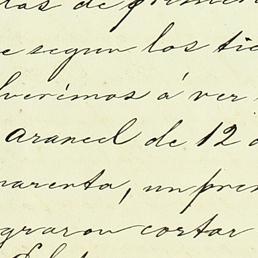 las de prime
e segun los ti
lverémos á ver
arancel de 12 d
uarenta, un pre
graron cortar